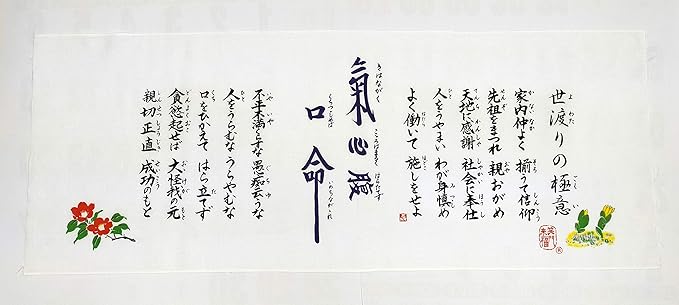 世渡りの極意
家内仲よく 揃うて信仰
先祖をまつれ 親おがめ
天地に感謝 社会に奉仕
人をうやまい わが身慎め
よく働いて 施しをせよ
氣 心 腹
きはながく こころはまるく はらたてず
口 命
くちつつしめば いのちながかれ
不平不満 愚痴云うな
人をうらむな うらやむな
口をひかえて はら立てず
貪慾起せば 大怪我の元
親切正直 成功のもと